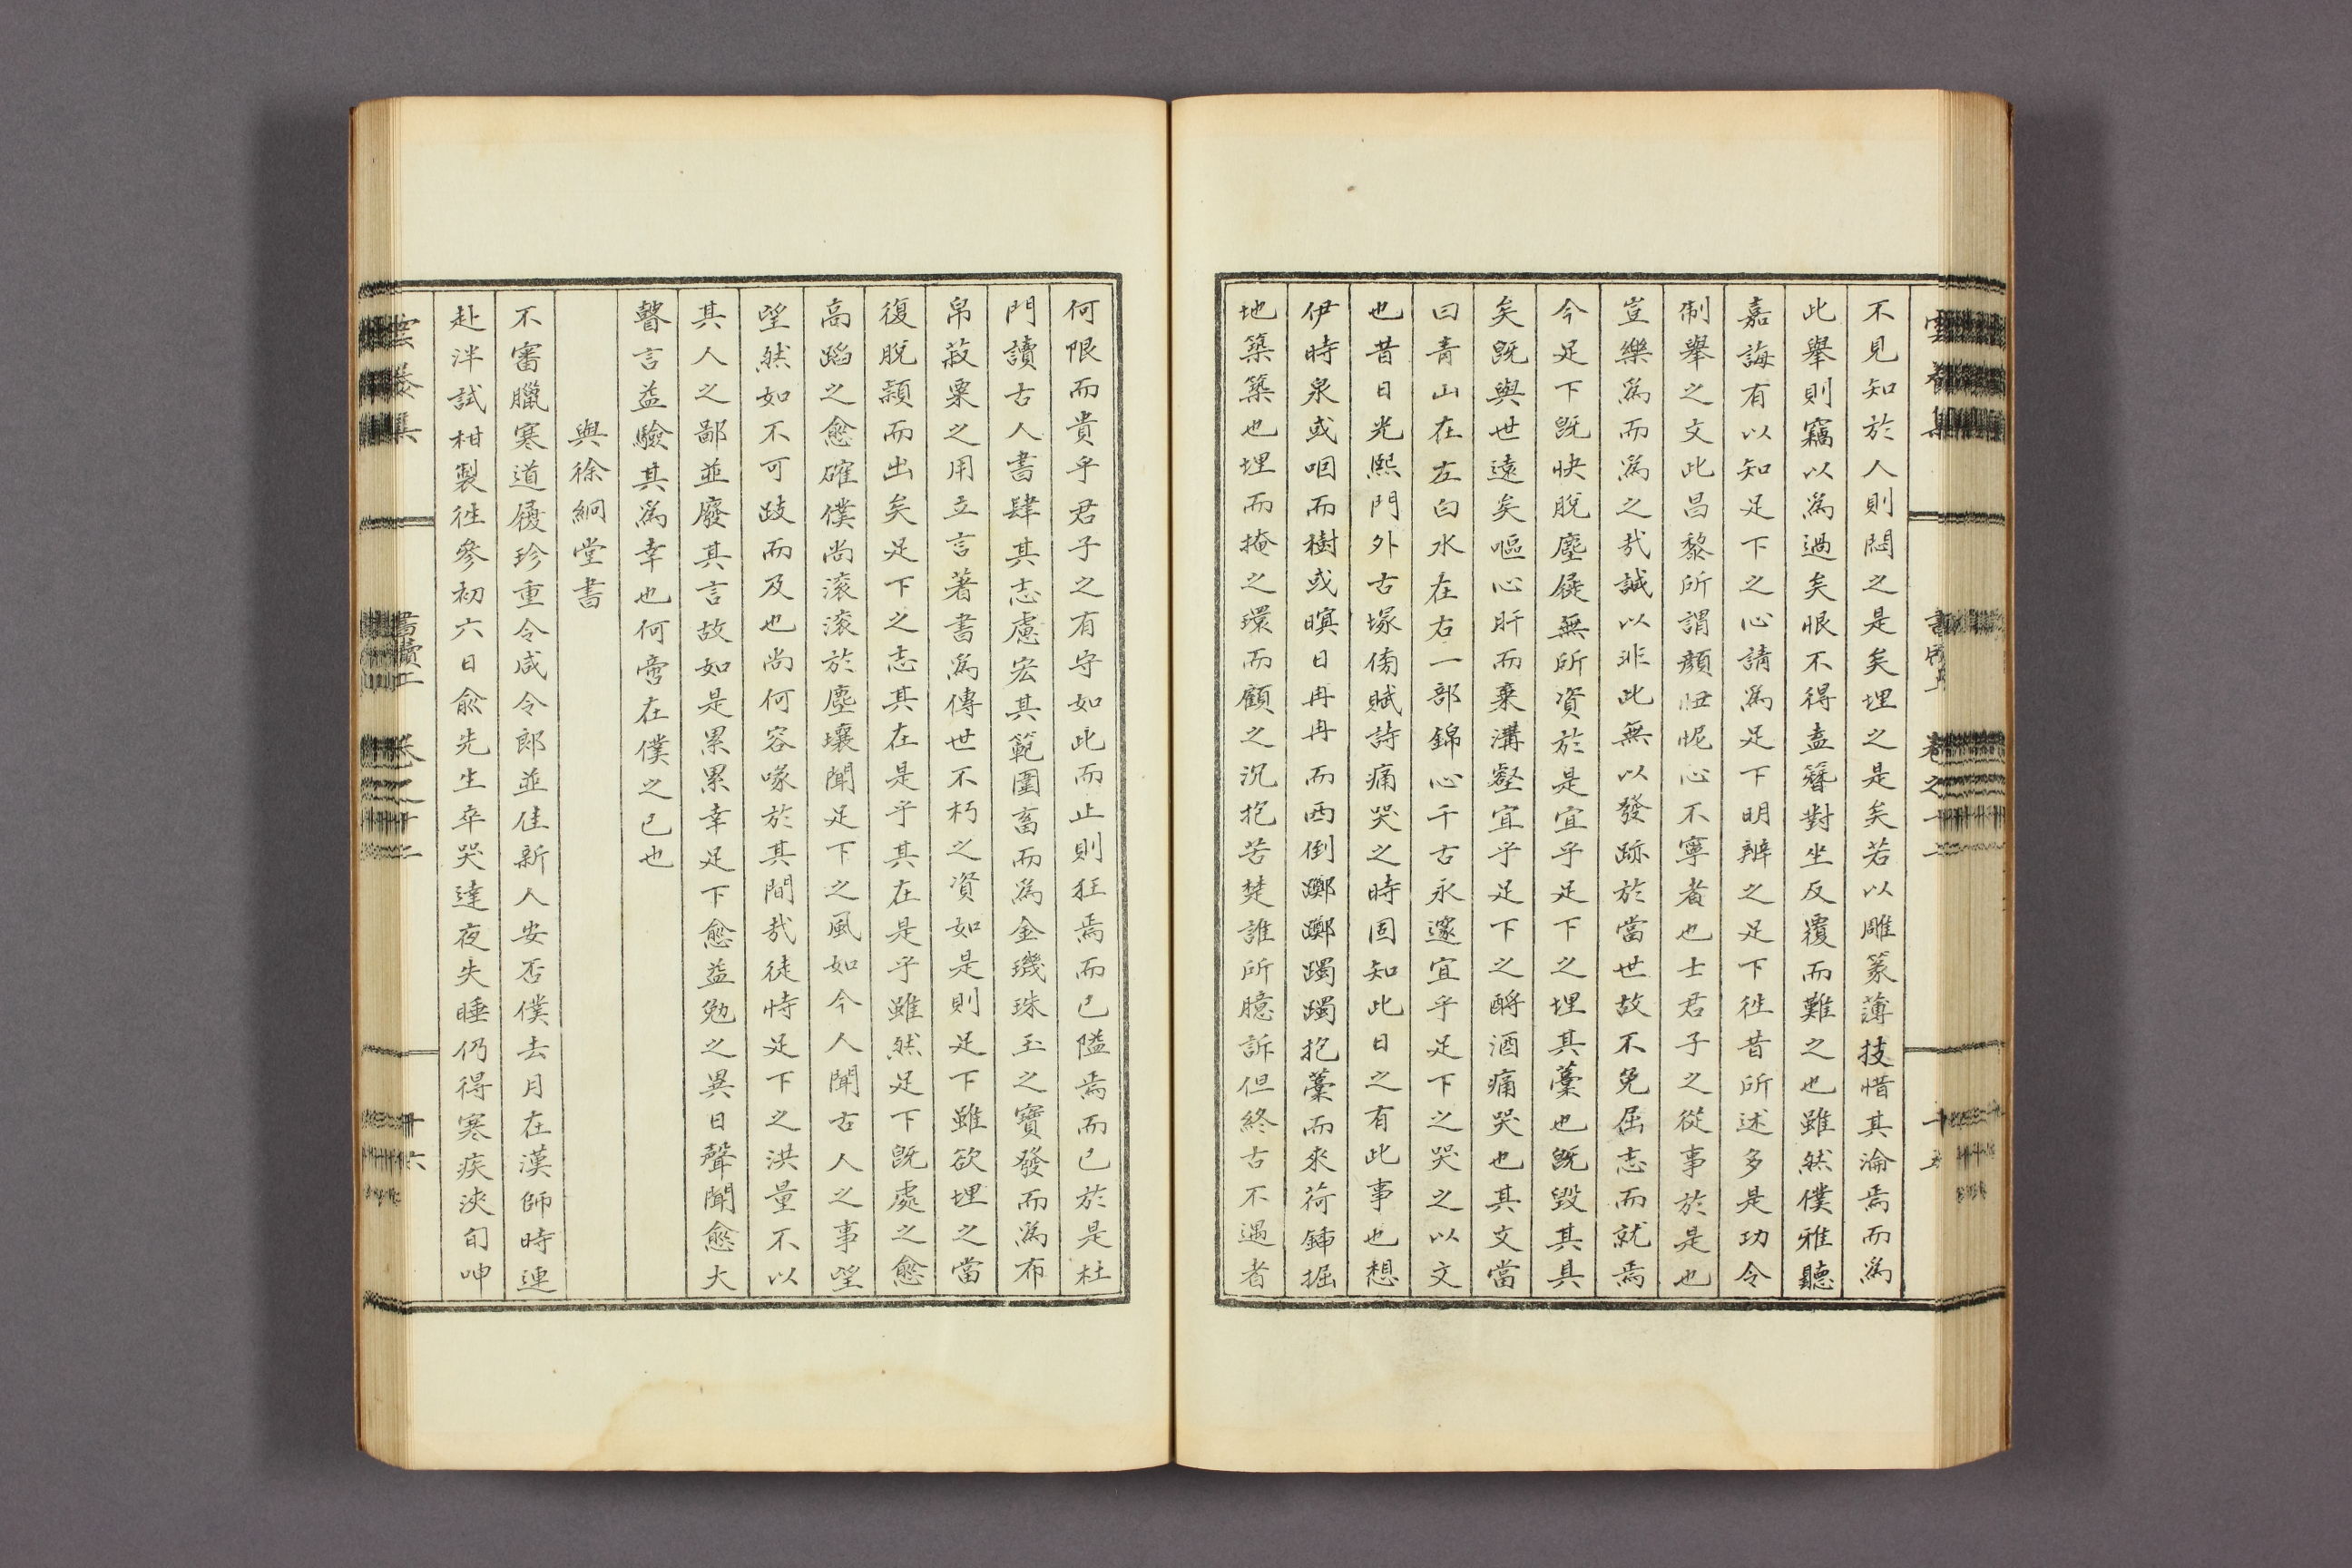 不見知於人則悶之是矣埋之是矣若以雕篆薄技惜其淪焉而爲
此擧則竊以爲過矣恨不得盍簪對坐反覆而難之也雖然僕雅聽
嘉誨有以知足下之心請爲足下明辨之足下徃昔所述多是功令
制擧之文此昌黎所謂顏忸怩心不寧者也士君子之從事於是也
豈樂爲而爲之哉誠以非此無以發跡於當世故不免屈志而就焉
今足下旣快脫塵屣無所資於是宜乎足下之埋其藁也旣毀其具
矣旣與世遠矣嘔心肝而棄溝壑宜乎足下之酹酒痛哭也其文當
曰靑山在左白水在右一部錦心千古永邃宜乎足下之哭之以文
也昔日光熙門外古塚傍賦詩痛哭之時固知此日之有此事也想
伊時泉或咽而樹或暝日冉冉而西倒躑躑躅躅抱藁而來荷鍤掘
地築築也埋而掩之環而顧之沉抱苦楚誰所臆訴但終古不遇者
何限而貴乎君子之有守如此而止則狂焉而已隘焉而已於是杜
門讀古人書肆其志慮宏其範圍畜而爲金璣珠玉之寶發而爲布
帛菽粟之用立言著書爲傳世不朽之資如是則足下雖欲埋之當
復脫穎而出矣足下之志其在是乎其在是乎雖然足下旣處之愈
高蹈之愈確僕尙滾滾於塵壤聞足下之風如今人聞古人之事望
望然如不可跂而及也尙何容喙於其間哉徒恃足下之洪量不以
其人之鄙並廢其言故如是累累幸足下愈益勉之異日聲聞愈大
瞽言益驗其爲幸也何啻在僕之已也
與徐絅堂書
不審臘寒道履珍重令咸令郎並佳新人安否僕去月在漢師時連
赴泮試柑製徃參初六日兪先生卒哭達夜失睡仍得寒疾浹旬呻
雲養集
書牘上
卷之十二
十六